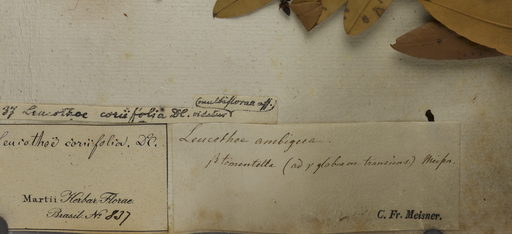 37 Leucothoe coriifolia DC. videtur
(multiflorae aff.)
Leucothoë coriifolia. DC.
Martii Herbar. Florae
Brasil. No 837
Leucothoe ambigua
β tomentella (ad γ glabram transiens) Meisn.
C. Fr. Meisner.